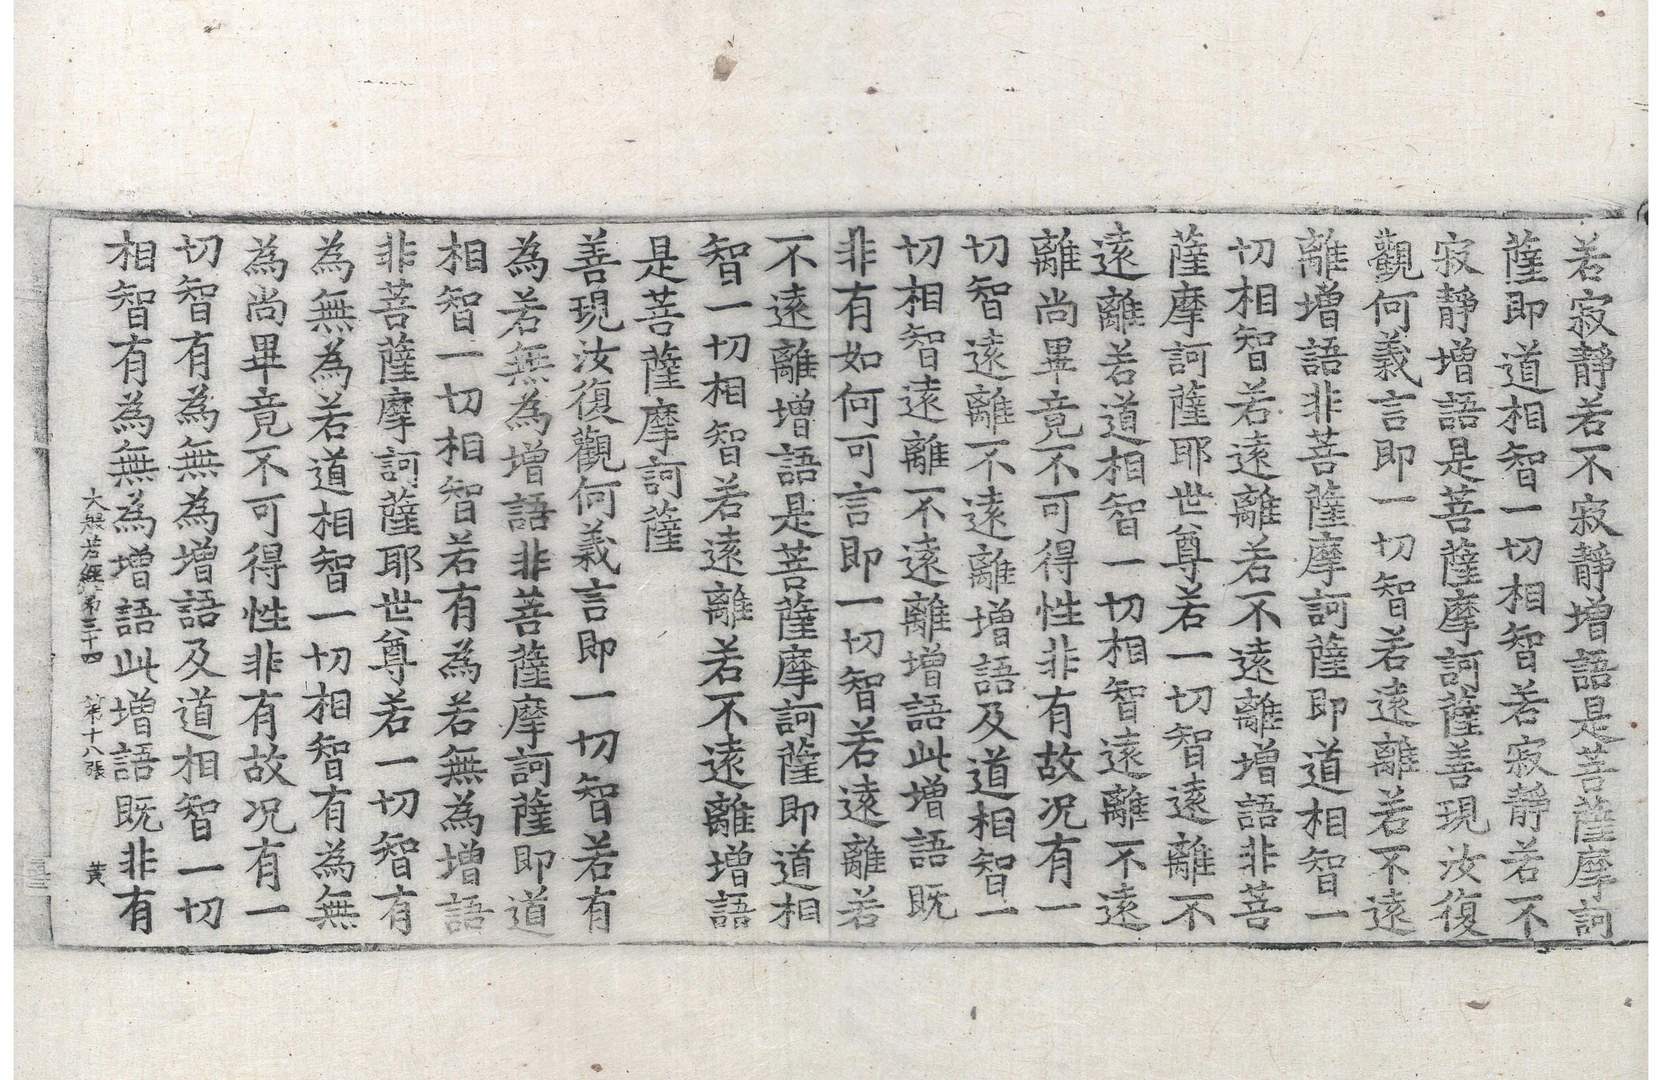 若寂靜若不寂靜增語是菩薩摩訶
薩即道相智一切相智若寂靜若不
寂靜增語是菩薩摩訶薩善現汝復
觀何義言即一切智若遠離若不遠
離增語非菩薩摩訶薩即道相智一
切相智若遠離若不遠離增語非菩
薩摩訶薩耶世尊若一切智遠離不
遠離若道相智一切相智遠離不遠
離尚畢竟不可得性非有故况有一
切智遠離不遠離增語及道相智一
切相智遠離不遠離增語此增語既
非有如何可言即一切智若遠離若
不遠離增語是菩薩摩訶薩即道相
智一切相智若遠離若不遠離增語
是菩薩摩訶薩
善現汝復觀何義言即一切智若有
為若無為增語非菩薩摩訶薩即道
相智一切相智若有為若無為增語
非菩薩摩訶薩耶世尊若一切智有
為無為若道相智一切相智有為無
為尚畢竟不可得性非有故况有一
切智有為無為增語及道相智一切
相智有為無為增語此增語既非有
大般若經第三十四 第十八張 黃